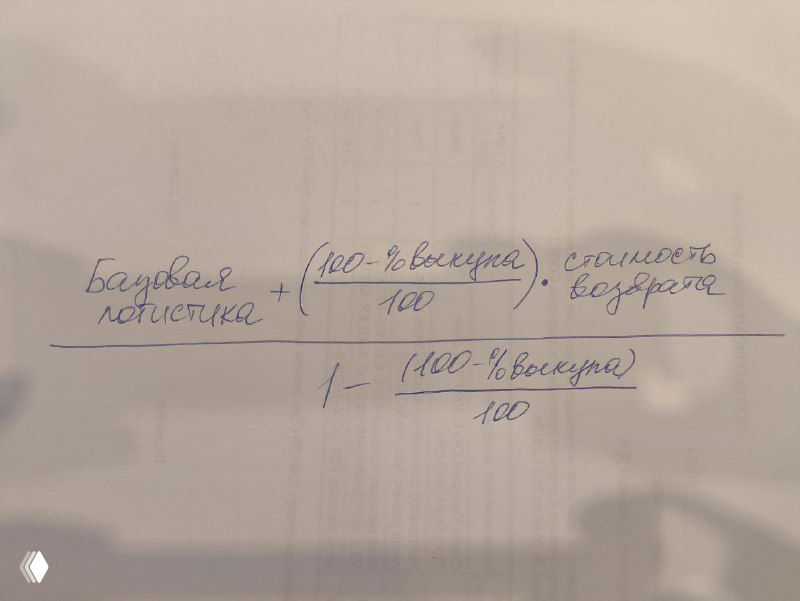 Базовая логистика + (100-%выкупа / 100) · стоимость возврата
1 - (100-%выкупа) / 100